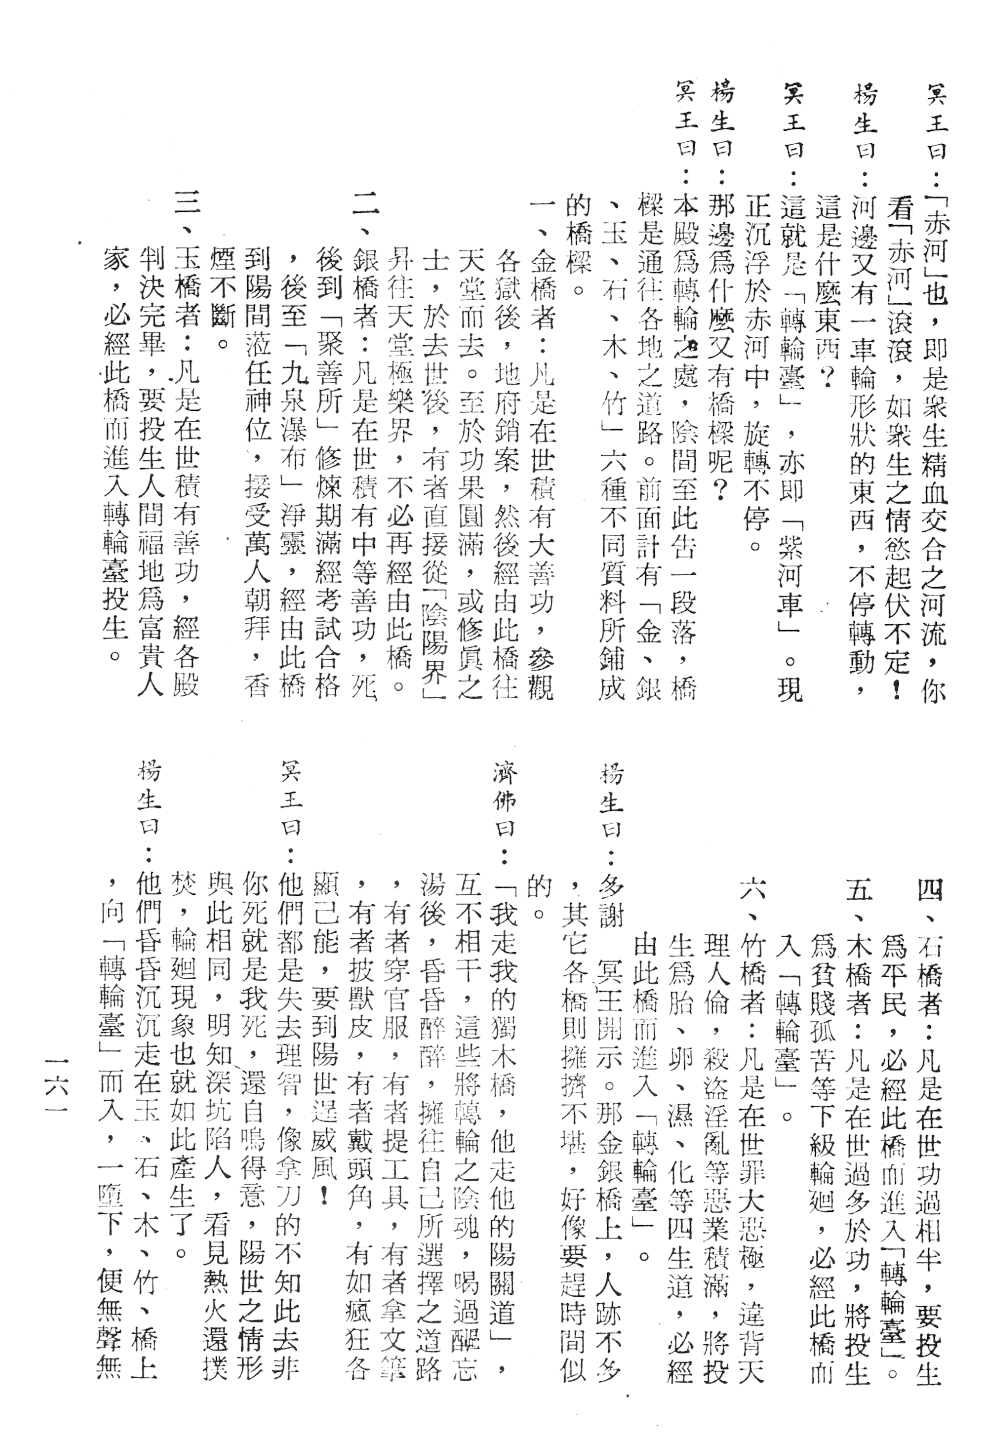 冥王曰：「赤河」也，即是衆生精血交合之河流，你
看「赤河」滾滾，如衆生之情慾起伏不定！
楊生曰：河邊又有一車輪形狀的東西，不停轉動，
這是什麼東西？
冥王曰：這就是「轉輪臺」，亦即「紫河車」。現
正沉浮於赤河中，旋轉不停。
楊生曰：那邊爲什麼又有橋樑呢？
冥王曰：本殿爲轉輪之處，陰間至此告一段落，橋
樑是通往各地之道路。前面計有「金、銀
、玉、石、木、竹」六種不同質料所鋪成
的橋樑。
一、金橋者：凡是在世積有大善功，參觀
各獄後，地府銷案，然後經由此橋往
天堂而去。至於功果圓滿，或修眞之
士，於去世後，有者直接從「陰陽界」
昇往天堂極樂界，不必再經由此橋。
二、銀橋者：凡是在世積有中等善功，死
後到「聚善所」修煉期滿經考試合格
，後至「九泉瀑布」淨靈，經由此橋
到陽間蒞任神位，接受萬人朝拜，香
煙不斷。
三、玉橋者：凡是在世積有善功，經各殿
判決完畢，要投生人間福地爲富貴人
家，必經此橋而進入轉輪臺投生。
四、石橋者：凡是在世功過相半，要投生
爲平民，必經此橋而進入「轉輪臺」。
五、木橋者：凡是在世過多於功，將投生
爲貧賤孤苦等下級輪廻，必經此橋而
入「轉輪臺」。
六、竹橋者：凡是在世罪大惡極，違背天
理人倫，殺盜淫亂等惡業積滿，將投
生爲胎、卵、濕、化等四生道，必經
由此橋而進入「轉輪臺」。
楊生曰：多謝　冥王開示。那金銀橋上，人跡不多
，其它各橋則擁擠不堪，好像要趕時間似
的。
濟佛曰：「我走我的獨木橋，他走他的陽關道」，
互不相干，這些將轉輪之陰魂，喝過醧忘
湯後，昏昏醉醉，擁往自己所選擇之道路
，有者穿官服，有者提工具，有者拿文筆
，有者披獸皮，有者戴頭角，有如瘋狂各
顯己能，要到陽世逞威風！
冥王曰：他們都是失去理智，像拿刀的不知此去非
你死就是我死，還自鳴得意，陽世之情形
與此相同，明知深坑陷人，看見熱火還撲
焚，輪廻現象也就如此產生了。
楊生曰：他們昏昏沉沉走在玉、石、木、竹、橋上
，向「轉輪臺」而入，一墮下，便無聲無
一六一